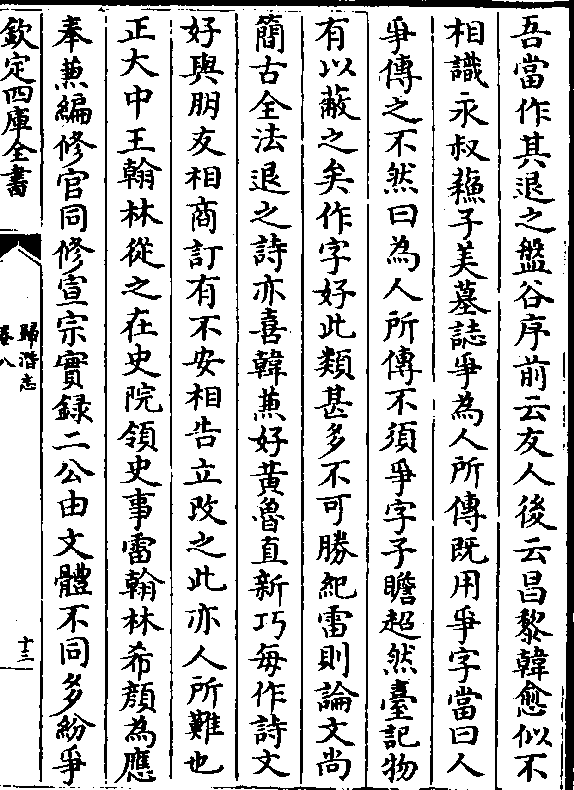 吾當作其退之盤谷序前云友人後云昌黎韓愈似不
相識永叔蘓子美墓誌爭為人所傳既用爭字當曰人
爭傳之不然曰為人所傳不須爭字子瞻超然臺記物
有以蔽之矣作字好此類甚多不可勝紀雷則論文尚
簡古全法退之詩亦喜韓兼好黃魯直新巧每作詩文
好與朋友相商訂有不安相告立改之此亦人所難也
正大中王翰林從之在史院領史事雷翰林希顔為應
奉兼編修官同修宣宗實録二公由文體不同多紛爭
欽定四庫全書
歸潛志
卷八
十三